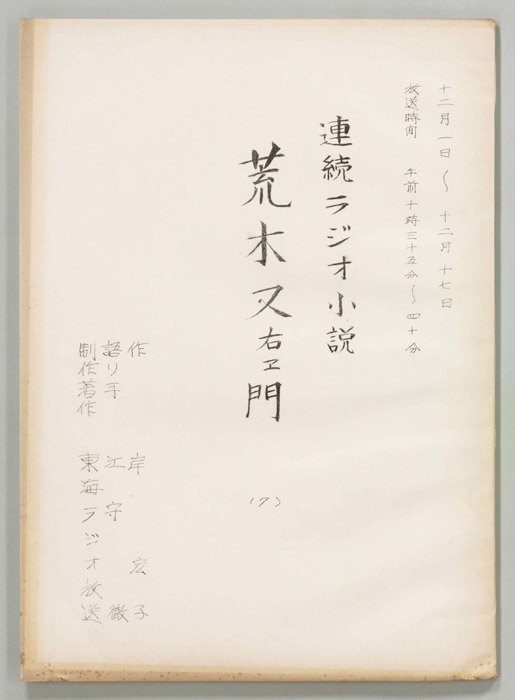 十二月一日〜十二月十七日
放送時間 午前十時三十五分〜四十分
連続ラジオ小説
荒木又右ヱ門
(7)
作 岸宏子
語り手 江守徹
制作著作 東海ラジオ放送